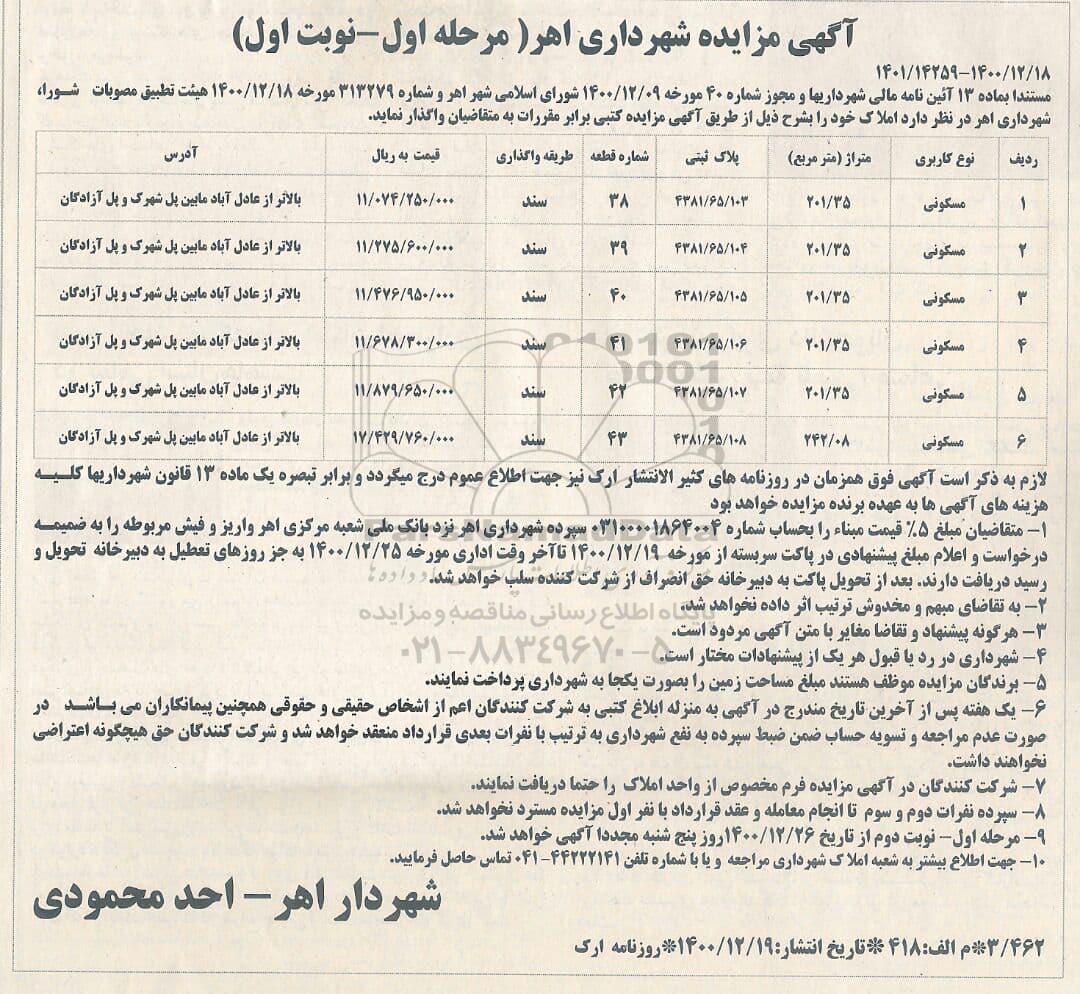 آگهی مزایده شهرداری اهر( مرحله اول-نوبت اول)
۱۴۰۰/۱۲/۱۸-۱۴۰۱/۱۴۲۵۹
مستندا بماده ۱۳ آئین نامه مالی شهرداریها و مجوز شماره ۴۰ مورخه ۱۴۰۰/۱۲/۰۹ شورای اسلامی شهر اهر و شماره ۳۱۳۲۷۹ مورخه ۱۴۰۰/۱۲/۱۸ هیئت تطبیق مصوبات شورا،
شهرداری اهر در نظر دارد املاک خود را بشرح ذیل از طریق آگهی مزایده کتبی برابر مقررات به متقاضیان واگذار نماید.
ردیف نوع کاربری متراژ (متر مربع) پلاک ثبتی شماره قطعه طریقه واگذاری قیمت به ریال آدرس
۱ مسکونی ۲۰۱/۳۵ ۴۳۸۱/۶۵/۱۰۳ ۳۸ سند ۱۱/۰۷۴/۲۵۰/۰۰۰ بالاتر از عادل آباد مابین پل شهرک و پل آزادگان
۲ مسکونی ۲۰۱/۳۵ ۴۳۸۱/۶۵/۱۰۴ ۳۹ سند ۱۱/۲۷۵/۶۰۰/۰۰۰ بالاتر از عادل آباد مابین پل شهرک و پل آزادگان
۳ مسکونی ۲۰۱/۳۵ ۴۳۸۱/۶۵/۱۰۵ ۴۰ سند ۱۱/۴۷۶/۹۵۰/۰۰۰ بالاتر از عادل آباد مابین پل شهرک و پل آزادگان
۴ مسکونی ۲۰۱/۳۵ ۴۳۸۱/۶۵/۱۰۶ ۴۱ سند ۱۱/۶۷۸/۳۰۰/۰۰۰ بالاتر از عادل آباد مابین پل شهرک و پل آزادگان
۵ مسکونی ۲۰۱/۳۵ ۴۳۸۱/۶۵/۱۰۷ ۴۲ سند ۱۱/۸۷۹/۶۵۰/۰۰۰ بالاتر از عادل آباد مابین پل شهرک و پل آزادگان
۶ مسکونی ۲۴۲/۰۸ ۴۳۸۱/۶۵/۱۰۸ ۴۳ سند ۱۷/۴۲۹/۷۶۰/۰۰۰ بالاتر از عادل آباد مابین پل شهرک و پل آزادگان
لازم به ذکر است آگهی فوق همزمان در روزنامه های کثیر الانتشار ارک نیز جهت اطلاع عموم درج میگردد و برابر تبصره یک ماده ۱۳ قانون شهرداریها کلیه
هزینه های آگهی ها به عهده برنده مزایده خواهد بود
۱- متقاضیان مبلغ ۵٪ قیمت مبناء را بحساب شماره ۰۳۱۰۰۰۰۱۸۶۴۰۰۴ سپرده شهرداری اهر نزد بانک ملی شعبه مرکزی اهر واریز و فیش مربوطه را به ضمیمه
درخواست و اعلام مبلغ پیشنهادی در پاکت سربسته از مورخه ۱۴۰۰/۱۲/۱۹ تاآخر وقت اداری مورخه ۱۴۰۰/۱۲/۲۵ به جز روزهای تعطیل به دبیرخانه تحویل و
رسید دریافت دارند. بعد از تحویل پاکت به دبیرخانه حق انصراف از شرکت کننده سلب خواهد شد.
۲- به تقاضای مبهم و مخدوش ترتیب اثر داده نخواهد شد.
پایگاه اطلاع رسانی مناقصه و مزایده
۳- هرگونه پیشنهاد و تقاضا مغایر با متن آگهی مردود است.
۰۲۱-۸۸۳۴۹۶۷۰-۵
۴- شهرداری در رد یا قبول هر یک از پیشنهادات مختار است.
۵- برندگان مزایده موظف هستند مبلغ مساحت زمین را بصورت یکجا به شهرداری پرداخت نمایند.
۶- یک هفته پس از آخرین تاریخ مندرج در آگهی به منزله ابلاغ کتبی به شرکت کنندگان اعم از اشخاص حقیقی و حقوقی همچنین پیمانکاران می باشد در
صورت عدم مراجعه و تسویه حساب ضمن ضبط سپرده به نفع شهرداری به ترتیب با نفرات بعدی قرارداد منعقد خواهد شد و شرکت کنندگان حق هیچگونه اعتراضی
نخواهند داشت.
۷- شرکت کنندگان در آگهی مزایده فرم مخصوص از واحد املاک را حتما دریافت نمایند.
۸- سپرده نفرات دوم و سوم تا انجام معامله و عقد قرارداد با نفر اول مزایده مسترد نخواهد شد.
۹- مرحله اول- نوبت دوم از تاریخ ۱۴۰۰/۱۲/۲۶روز پنج شنبه مجددا آگهی خواهد شد.
۱۰- جهت اطلاع بیشتر به شعبه املاک شهرداری مراجعه و یا با شماره تلفن ۴۴۲۲۲۱۴۱-۰۴۱ تماس حاصل فرمایید.
شهردار اهر - احد محمودی
۳/۴۶۲*م الف:۴۱۸ *تاریخ انتشار:۱۴۰۰/۱۲/۱۹*روزنامه ارک